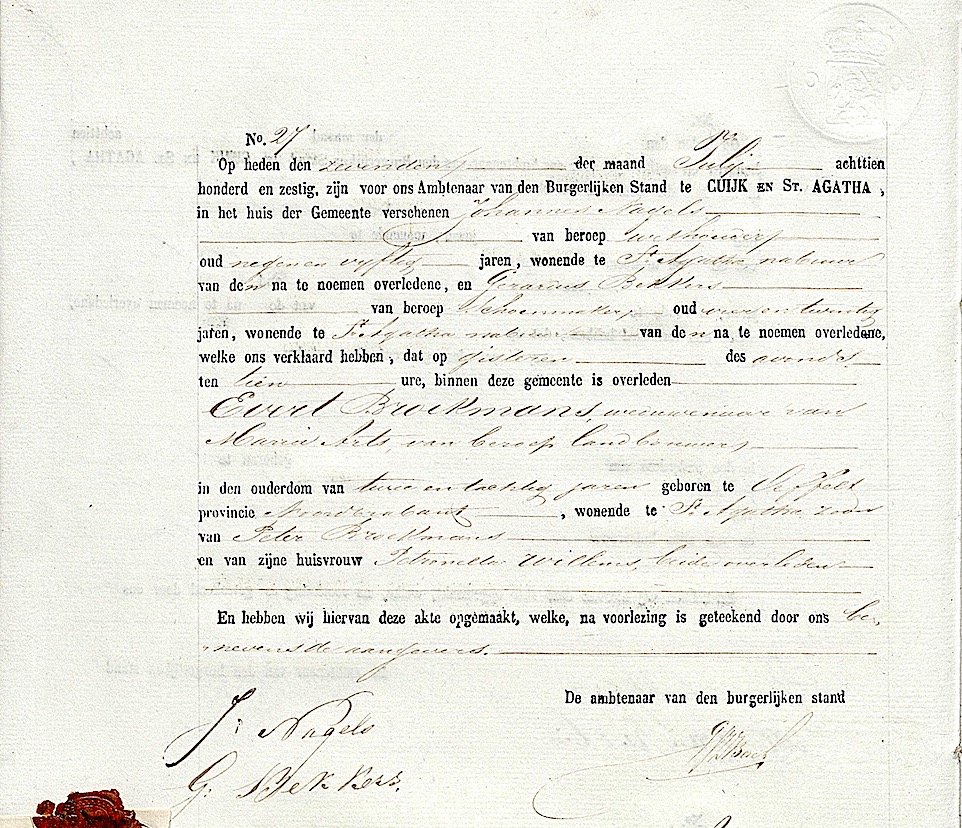 No. 27
Op heden den zevenden der maand Julij achttien
honderd en zestig, zijn voor ons Ambtenaar van den Burgerlijken Stand te CUIJK EN ST. AGATHA,
in het huis der Gemeente verschenen Johannes Nagels
van beroep wethouder
oud negen en vyftig jaren, wonende te St Agatha nabuur
van den na te noemen overledene, en Gerardus Bekkers
van beroep Schoenmaker, oud vier en twintig
jaren, wonende te St Agatha nabuur van den na te noemen overledene,
welke ons verklaard hebben, dat op gisteren des avonds
ten tien ure, binnen deze gemeente is overleden
Evert Broekmans, weduwenaar van
Maria Arts, van beroep landbouwer,
in den ouderdom van twee en tachtig jaren geboren te Oeffelt
provincie Noordbrabant, wonende te St Agatha zoon
van Peter Broekmans
en van zijne huisvrouw Petronella Willems, beide overleden
En hebben wij hiervan deze akte opgemaakt, welke, na voorlezing is geteekend door ons be-
nevens de aangevers.
De ambtenaar van den burgerlijken stand
J: Nagels
G: Bekkers.